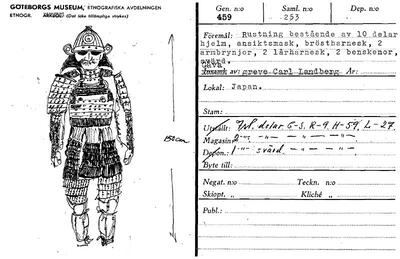 GÖTEBORGS MUSEUM, ETNOGRAFISKA AVDELNINGEN
ETNOGR. ARKEOL. (Det icke tillämpliga strykes)
150 cm
Gen. n:o
459
Saml. n:o
253
Dep. n:o
Föremål: Rustning bestående av 10 delar
hjelm, ansiktsmask, bröstharnesk, 2
armbrynjor, 2 lårharnesk, 2 benskenor,
svärd.
Gåva
Insamlt av: greve Carl Landberg År:
Lokal: Japan.
Stam:
Utställt: delar G-S, R-9, H-59, L-27.
Magasin:
Depon.: 1 svärd
Byte till:
Negat. n:o Teckn. n:o
Skiopt. „ Kliché „
Publ.: